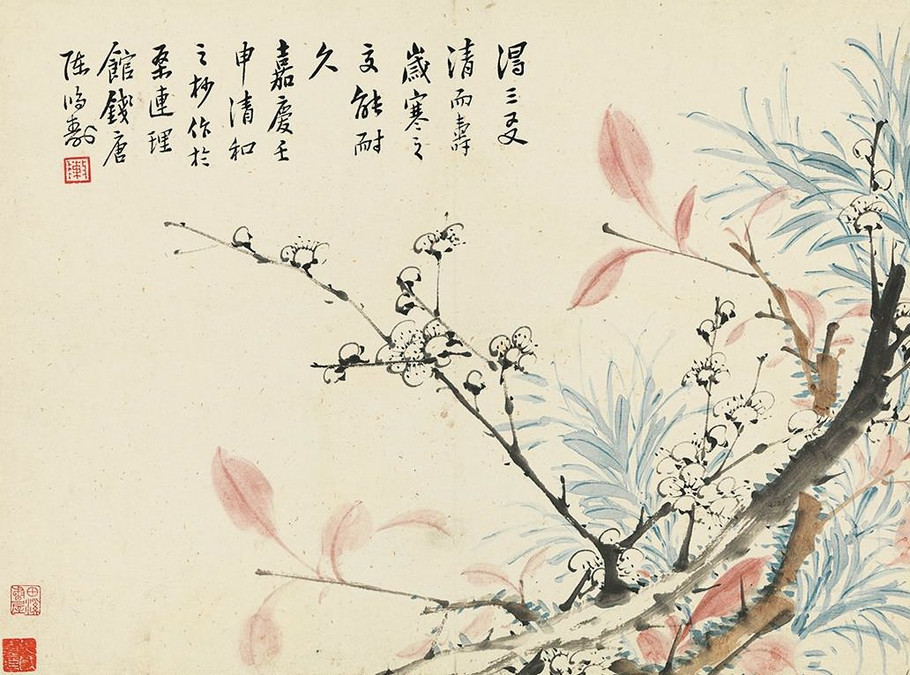 淂三友
清而壽
歲寒之
交能耐
久
嘉慶壬
申清和
之杪作於
桑連理
館錢唐
陳鴻壽